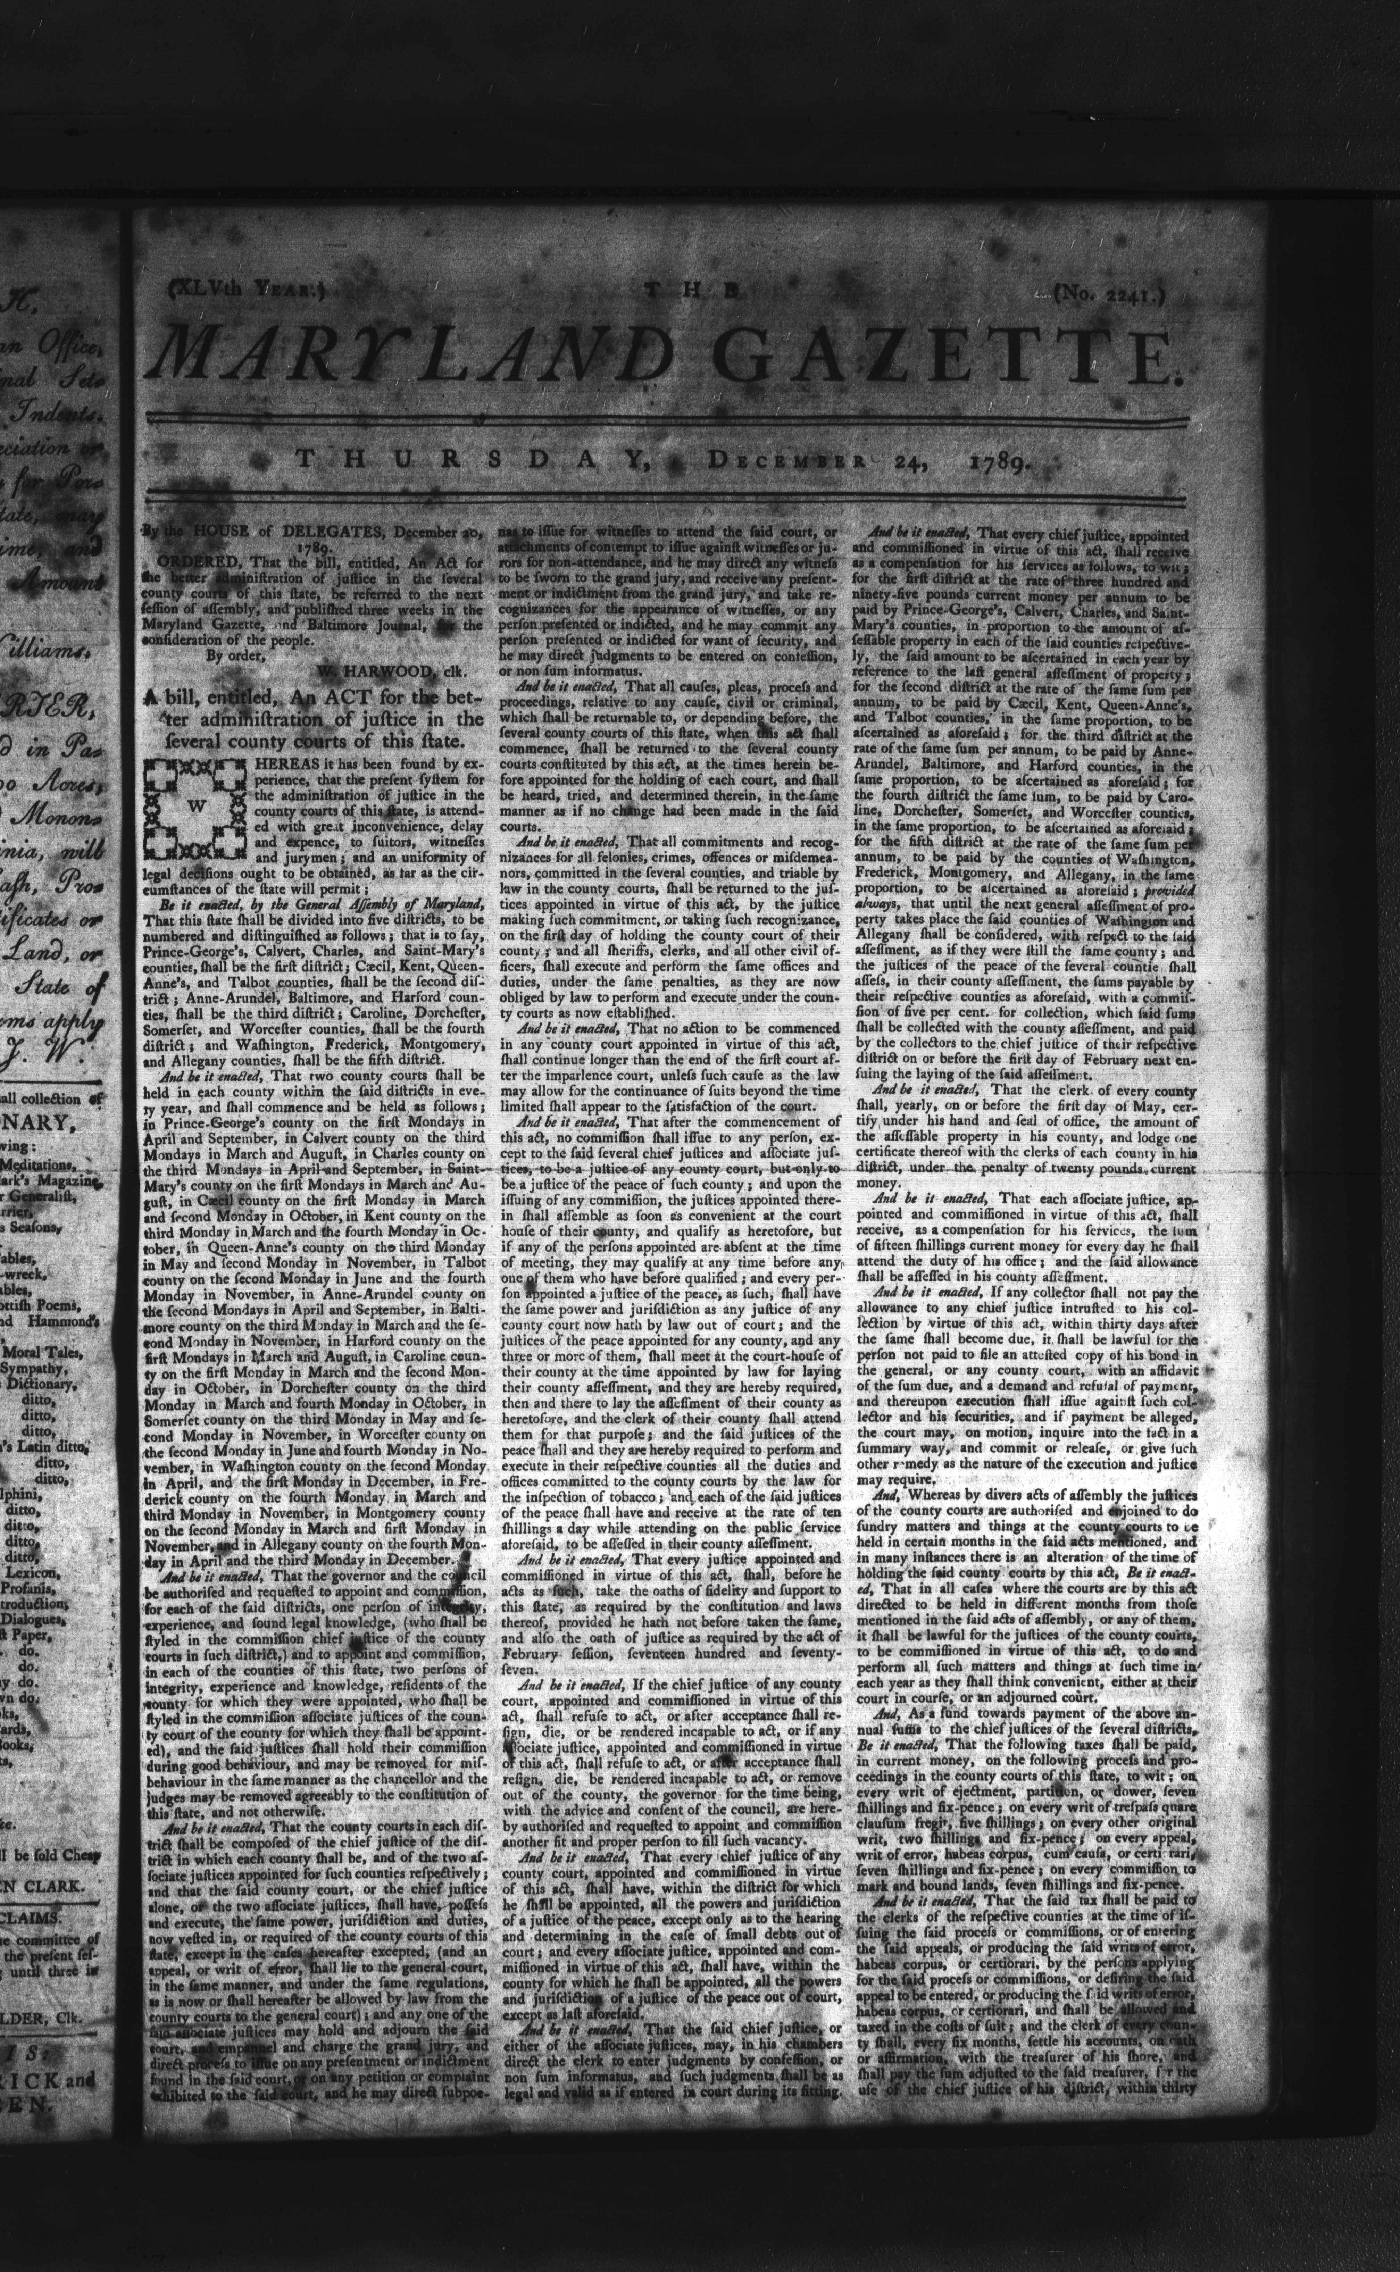 H,
an Office,
nal Set-
Indents.
eciation or
for Par-
tate, may
ime, and
Amount
illiams.
RTER,
d in Pa-
00 Acres,
Monon-
inia, will
ash, Pro-
ificates or
Land, or
State of
ms apply
J. W.
all collection of
NARY,
wing:
Meditations,
ark's Magazine,
r Generalist,
rrier,
s Seasons,
ables,
-wreck,
ables,
ottish Poems,
nd Hammond's
Moral Tales,
Sympathy,
Dictionary,
ditto,
ditto,
ditto,
's Latin ditto,
ditto,
ditto,
lphini,
ditto,
ditto,
ditto,
ditto,
Lexicon,
Profanis,
troduction,
Dialogues,
st Paper,
do.
do.
y do.
wn do.
ks,
ards,
Books,
ts,
l be sold Cheap
EN CLARK.
CLAIMS.
he committee of
the present ses-
until three in
LDER, Clk.
I S:
RICK and
EEN.
(XLVth YEAR.)
THE
(No. 2241.)
MARYLAND GAZETTE.
THURSDAY, DECEMBER 24, 1789.
By the HOUSE of DELEGATES, December 20,
1789.
ORDERED, That the bill, entitled, An Act for
the better administration of justice in the several
county courts of this state, be referred to the next
session of assembly, and published three weeks in the
Maryland Gazette, and Baltimore Journal, for the
consideration of the people.
By order,
W. HARWOOD, clk.
A bill, entitled, An ACT for the bet-
ter administration of justice in the
several county courts of this state.
WHEREAS it has been found by ex-
perience, that the present system for
the administration of justice in the
county courts of this state, is attend-
ed with great inconvenience, delay
and expence, to suitors, witnesses
and jurymen; and an uniformity of
legal decisions ought to be obtained, as far as the cir-
cumstances of the state will permit;
Be it enacted, by the General Assembly of Maryland,
That this state shall be divided into five districts, to be
numbered and distinguished as follows; that is to say,
Prince-George's, Calvert, Charles, and Saint-Mary's
counties, shall be the first district; Cæcil, Kent, Queen-
Anne's, and Talbot counties, shall be the second dis-
trict; Anne-Arundel, Baltimore, and Harford coun-
ties, shall be the third district; Caroline, Dorchester,
Somerset, and Worcester counties, shall be the fourth
district; and Washington, Frederick, Montgomery,
and Allegany counties, shall be the fifth district.
And be it enacted, That two county courts shall be
held in each county within the said districts in eve-
ry year, and shall commence and be held as follows;
in Prince-George's county on the first Mondays in
April and September, in Calvert county on the third
Mondays in March and August, in Charles county on
the third Mondays in April and September, in Saint-
Mary's county on the first Mondays in March and Au-
gust, in Cæcil county on the first Monday in March
and second Monday in October, in Kent county on the
third Monday in March and the fourth Monday in Oc-
tober, in Queen-Anne's county on the third Monday
in May and second Monday in November, in Talbot
county on the second Monday in June and the fourth
Monday in November, in Anne-Arundel county on
the second Mondays in April and September, in Balti-
more county on the third Monday in March and the se-
cond Monday in November, in Harford county on the
first Mondays in March and August, in Caroline coun-
ty on the first Monday in March and the second Mon-
day in October, in Dorchester county on the third
Monday in March and fourth Monday in October, in
Somerset county on the third Monday in May and se-
cond Monday in November, in Worcester county on
the second Monday in June and fourth Monday in No-
vember, in Washington county on the second Monday
in April, and the first Monday in December, in Fre-
derick county on the fourth Monday in March and
third Monday in November, in Montgomery county
on the second Monday in March and first Monday in
November, and in Allegany county on the fourth Mon-
day in April and the third Monday in December.
And be it enacted, That the governor and the council
be authorised and requested to appoint and commission,
for each of the said districts, one person of integrity,
experience, and sound legal knowledge, (who shall be
styled in the commission chief justice of the county
courts in such district,) and to appoint and commission,
in each of the counties of this state, two persons of
integrity, experience and knowledge, residents of the
county for which they were appointed, who shall be
styled in the commission associate justices of the coun-
ty court of the county for which they shall be appoint-
ed), and the said justices shall hold their commission
during good behaviour, and may be removed for mis-
behaviour in the same manner as the chancellor and the
judges may be removed agreeably to the constitution of
this state, and not otherwise.
And be it enacted, That the county courts in each dis-
trict shall be composed of the chief justice of the dis-
trict in which each county shall be, and of the two as-
sociate justices appointed for such counties respectively;
and that the said county court, or the chief justice
alone, or the two associate justices, shall have, possess
and execute, the same power, jurisdiction and duties,
now vested in, or required of the county courts of this
state, except in the cases hereafter excepted, (and an
appeal, or writ of error, shall lie to the general court,
in the same manner, and under the same regulations,
as is now or shall hereafter be allowed by law from the
county courts to the general court); and any one of the
said associate justices may hold and adjourn the said
court, and empannel and charge the grand jury, and
direct process to issue on any presentment or indictment
found in the said court, or on any petition or complaint
exhibited to the said court, and he may direct subpoe-
nas to issue for witnesses to attend the said court, or
attachments of contempt to issue against witnesses or ju-
rors for non-attendance, and he may direct any witness
to be sworn to the grand jury, and receive any present-
ment or indictment from the grand jury, and take re-
cognizances for the appearance of witnesses, or any
person presented or indicted, and he may commit any
person presented or indicted for want of security, and
he may direct judgments to be entered on confession,
or non sum informatus.
And be it enacted, That all causes, pleas, process and
proceedings, relative to any cause, civil or criminal,
which shall be returnable to, or depending before, the
several county courts of this state, when this act shall
commence, shall be returned to the several county
courts constituted by this act, at the times herein be-
fore appointed for the holding of each court, and shall
be heard, tried, and determined therein, in the same
manner as if no change had been made in the said
courts.
And be it enacted, That all commitments and recog-
nizances for all felonies, crimes, offences or misdemea-
nors, committed in the several counties, and triable by
law in the county courts, shall be returned to the jus-
tices appointed in virtue of this act, by the justice
making such commitment, or taking such recognizance,
on the first day of holding the county court of their
county; and all sheriffs, clerks, and all other civil of-
ficers, shall execute and perform the same offices and
duties, under the same penalties, as they are now
obliged by law to perform and execute under the coun-
ty courts as now established.
And be it enacted, That no action to be commenced
in any county court appointed in virtue of this act,
shall continue longer than the end of the first court af-
ter the imparlence court, unless such cause as the law
may allow for the continuance of suits beyond the time
limited shall appear to the satisfaction of the court.
And be it enacted, That after the commencement of
this act, no commission shall issue to any person, ex-
cept to the said several chief justices and associate jus-
tices, to be a justice of any county court, but only to
be a justice of the peace of such county; and upon the
issuing of any commission, the justices appointed there-
in shall assemble as soon as convenient at the court
house of their county, and qualify as heretofore, but
if any of the persons appointed are absent at the time
of meeting, they may qualify at any time before any
one of them who have before qualified; and every per-
son appointed a justice of the peace, as such, shall have
the same power and jurisdiction as any justice of any
county court now hath by law out of court; and the
justices of the peace appointed for any county, and any
three or more of them, shall meet at the court-house of
their county at the time appointed by law for laying
their county assessment, and they are hereby required,
then and there to lay the assessment of their county as
heretofore, and the clerk of their county shall attend
them for that purpose; and the said justices of the
peace shall and they are hereby required to perform and
execute in their respective counties all the duties and
offices committed to the county courts by the law for
the inspection of tobacco; and each of the said justices
of the peace shall have and receive at the rate of ten
shillings a day while attending on the public service
aforesaid, to be assessed in their county assessment.
And be it enacted, That every justice appointed and
commissioned in virtue of this act, shall, before he
acts as such, take the oaths of fidelity and support to
this state, as required by the constitution and laws
thereof, provided he hath not before taken the same,
and also the oath of justice as required by the act of
February session, seventeen hundred and seventy-
seven.
And be it enacted, If the chief justice of any county
court, appointed and commissioned in virtue of this
act, shall refuse to act, or after acceptance shall re-
sign, die, or be rendered incapable to act, or if any
associate justice, appointed and commissioned in virtue
of this act, shall refuse to act, or after acceptance shall
resign, die, be rendered incapable to act, or remove
out of the county, the governor for the time being,
with the advice and consent of the council, are here-
by authorised and requested to appoint and commission
another fit and proper person to fill such vacancy.
And be it enacted, That every chief justice of any
county court, appointed and commissioned in virtue
of this act, shall have, within the district for which
he shall be appointed, all the powers and jurisdiction
of a justice of the peace, except only as to the hearing
and determining in the case of small debts out of
court; and every associate justice, appointed and com-
missioned in virtue of this act, shall have, within the
county for which he shall be appointed, all the powers
and jurisdiction of a justice of the peace out of court,
except as last aforesaid.
And be it enacted, That the said chief justice, or
either of the associate justices, may, in his chambers
direct the clerk to enter judgments by confession, or
non sum informatus, and such judgments shall be as
legal and valid as if entered in court during its sitting.
And be it enacted, That every chief justice, appointed
and commissioned in virtue of this act, shall receive
as a compensation for his services as follows, to wit;
for the first district at the rate of three hundred and
ninety-five pounds current money per annum to be
paid by Prince-George's, Calvert, Charles, and Saint-
Mary's counties, in proportion to the amount of as-
sessable property in each of the said counties respective-
ly, the said amount to be ascertained in each year by
reference to the last general assessment of property;
for the second district at the rate of the same sum per
annum, to be paid by Cæcil, Kent, Queen-Anne's,
and Talbot counties, in the same proportion, to be
ascertained as aforesaid; for the third district at the
rate of the same sum per annum, to be paid by Anne-
Arundel, Baltimore, and Harford counties, in the
same proportion, to be ascertained as aforesaid; for
the fourth district the same sum, to be paid by Caro-
line, Dorchester, Somerset, and Worcester counties,
in the same proportion, to be ascertained as aforesaid;
for the fifth district at the rate of the same sum per
annum, to be paid by the counties of Washington,
Frederick, Montgomery, and Allegany, in the same
proportion, to be ascertained as aforesaid; provided
always, that until the next general assessment of pro-
perty takes place the said counties of Washington and
Allegany shall be considered, with respect to the said
assessment, as if they were still the same county; and
the justices of the peace of the several countie shall
assess, in their county assessment, the sums payable by
their respective counties as aforesaid, with a commis-
sion of five per cent. for collection, which said sums
shall be collected with the county assessment, and paid
by the collectors to the chief justice of their respective
district on or before the first day of February next en-
suing the laying of the said assessment.
And be it enacted, That the clerk of every county
shall, yearly, on or before the first day of May, cer-
tify under his hand and seal of office, the amount of
the assessable property in his county, and lodge one
certificate thereof with the clerks of each county in his
district, under the penalty of twenty pounds current
money.
And be it enacted, That each associate justice, ap-
pointed and commissioned in virtue of this act, shall
receive, as a compensation for his services, the sum
of fifteen shillings current money for every day he shall
attend the duty of his office; and the said allowance
shall be assessed in his county assessment.
And be it enacted, If any collector shall not pay the
allowance to any chief justice intrusted to his col-
lection by virtue of this act, within thirty days after
the same shall become due, it shall be lawful for the
person not paid to file an attested copy of his bond in
the general, or any county court, with an affidavit
of the sum due, and a demand and refusal of payment,
and thereupon execution shall issue against such col-
lector and his securities, and if payment be alleged,
the court may, on motion, inquire into the fact in a
summary way, and commit or release, or give such
other remedy as the nature of the execution and justice
may require.
And, Whereas by divers acts of assembly the justices
of the county courts are authorised and enjoined to do
sundry matters and things at the county courts to be
held in certain months in the said acts mentioned, and
in many instances there is an alteration of the time of
holding the said county courts by this act, Be it enact-
ed, That in all cases where the courts are by this act
directed to be held in different months from those
mentioned in the said acts of assembly, or any of them,
it shall be lawful for the justices of the county courts,
to be commissioned in virtue of this act, to do and
perform all such matters and things at such time in
each year as they shall think convenient, either at their
court in course, or an adjourned court.
And, As a fund towards payment of the above an-
nual sums to the chief justices of the several districts,
Be it enacted, That the following taxes shall be paid,
in current money, on the following process and pro-
ceedings in the county courts of this state, to wit; on
every writ of ejectment, partition, or dower, seven
shillings and six-pence; on every writ of trespass quare
clausum fregit, five shillings; on every other original
writ, two shillings and six-pence; on every appeal,
writ of error, habeas corpus, cum causa, or certiorari,
seven shillings and six-pence; on every commission to
mark and bound lands, seven shillings and six-pence.
And be it enacted, That the said tax shall be paid to
the clerks of the respective counties at the time of is-
suing the said process or commissions, or of entering
the said appeals, or producing the said writs of error,
habeas corpus, or certiorari, by the persons applying
for the said process or commissions, or desiring the said
appeal to be entered, or producing the said writs of error,
habeas corpus, or certiorari, and shall be allowed and
taxed in the costs of suit; and the clerk of every coun-
ty shall, every six months, settle his accounts, on oath
or affirmation, with the treasurer of his shore, and
shall pay the sum adjusted to the said treasurer, for the
use of the chief justice of his district, within thirty